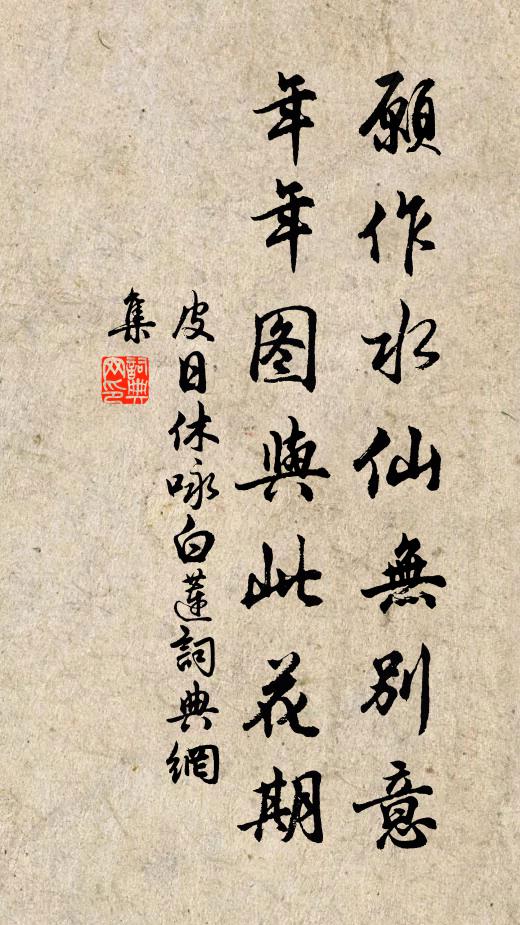 願作水仙無別意
年年图與此花期
皮日休咏白蓮詞典網
集
詞典
网印